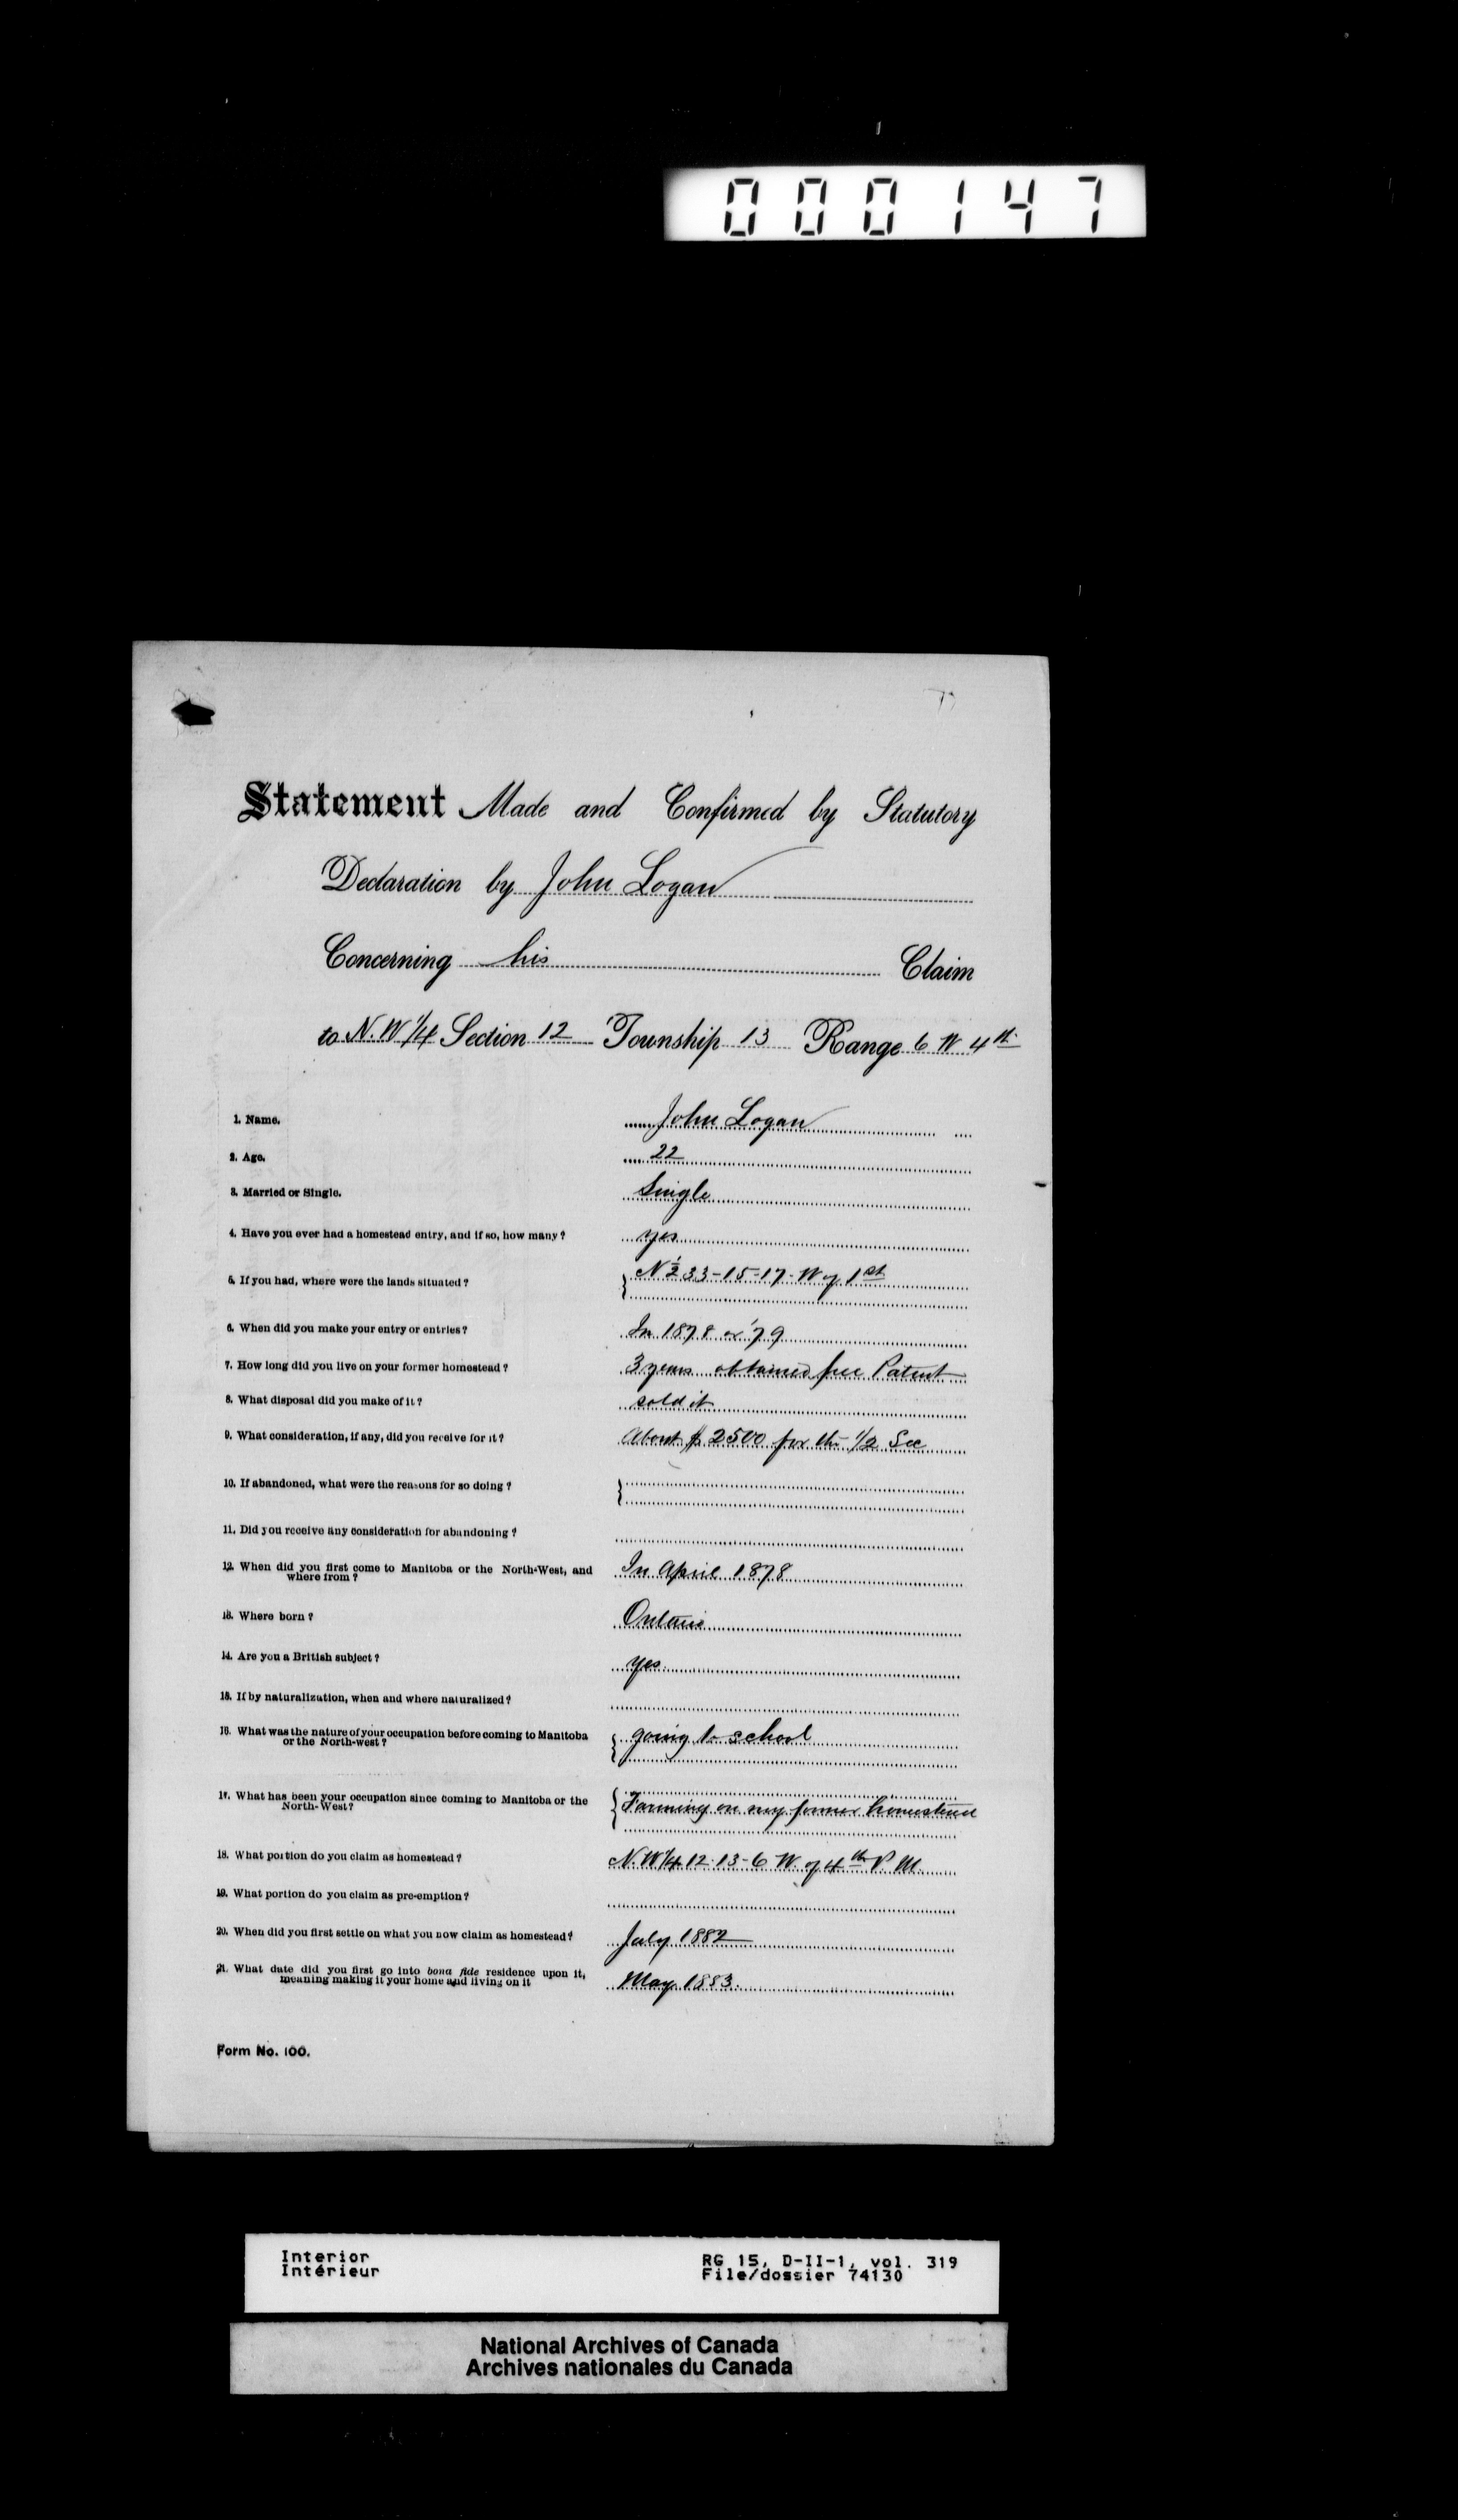 000147
Statement Made and Confirmed by Statutory
Declaration by John Logan
Concerning his Claim
to N.W 1/4 Section 12 Township 13 Range 6 W 4th
1. Name. John Logan
2. Age. 22
3. Married or Single. Single
4. Have you ever had a homestead entry, and if so, how many? yes
5. If you had, where were the lands situated? N 1/2 33-15-17-W of 1st
6. When did you make your entry or entries? In 1878 or '79
7. How long did you live on your former homestead? 3 years obtained free Patent
8. What disposal did you make of it? sold it
9. What consideration, if any, did you receive for it? About $2500 for the 1/2 Sec
10. If abandoned, what were the reasons for so doing?
11. Did you receive any consideration for abandoning?
12. When did you first come to Manitoba or the North-West, and In April 1878
where from?
13. Where born? Ontario
14. Are you a British subject? yes
15. If by naturalization, when and where naturalized?
16. What was the nature of your occupation before coming to Manitoba going to school
or the North-west?
17. What has been your occupation since coming to Manitoba or the Farming on my former homestead
North-West?
18. What portion do you claim as homestead? N.W 1/4 12-13-6 W. of 4th P.M.
19. What portion do you claim as pre-emption?
20. When did you first settle on what you now claim as homestead? July 1882
21. What date did you first go into bona fide residence upon it, May 1883.
meaning making it your home and living on it
Form No. 100.
Interior RG 15, D-II-1, vol. 319
Intérieur File/dossier 74130
National Archives of Canada
Archives nationales du Canada